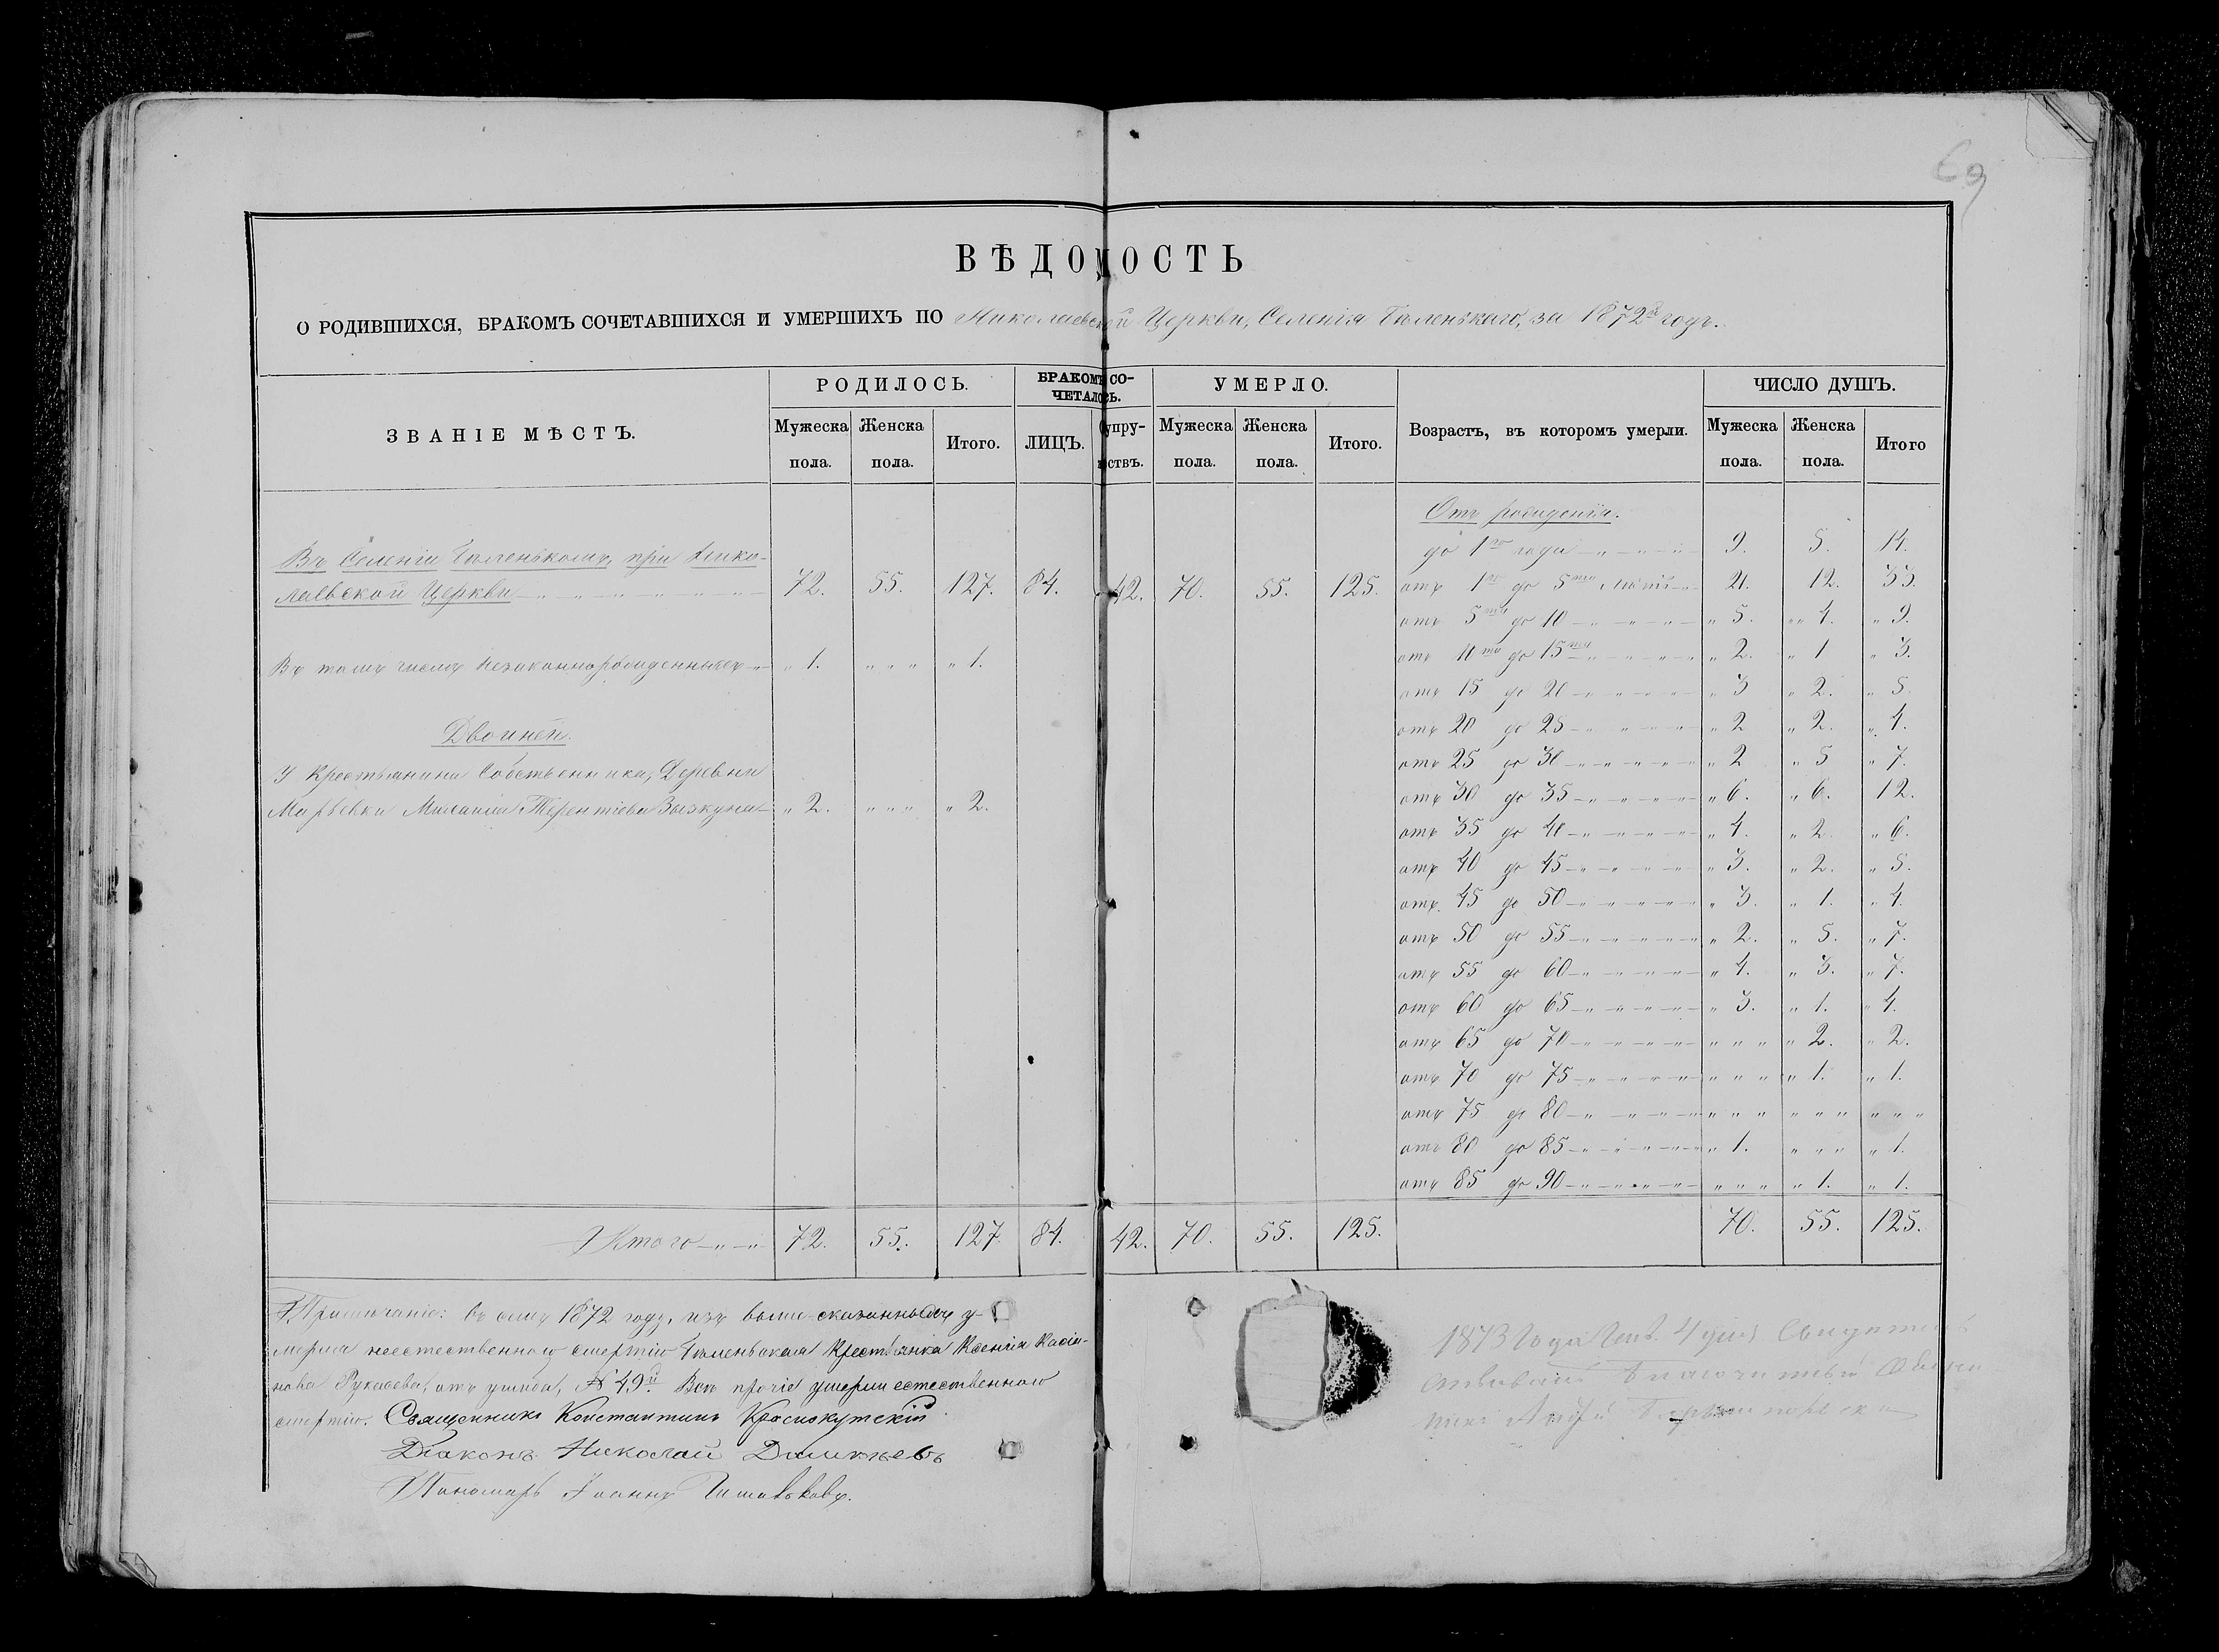 69
ВѢДОМОСТЬ
О РОДИВШИХСЯ, БРАКОМЪ СОЧЕТАВШИХСЯ И УМЕРШИХЪ ПО Николаевской Церкви, Селенія Бѣленькаго, за 1872й годъ.
ЗВАНІЕ МѢСТЪ. РОДИЛОСЬ. БРАКОМЪ СО-ЧЕТАЛОСЬ. УМЕРЛО. Возрастъ, въ которомъ умерли. ЧИСЛО ДУШЪ.
Мужеска пола. Женска пола. Итого. ЛИЦЪ. Супру-ествъ. Мужеска пола. Женска пола. Итого. Мужеска пола. Женска пола. Итого
Отъ рожденія.
до 1го года 9. 5. 14.
Въ Селеніи Бѣленькомъ, при Нико-
лаевской Церкви 72. 55. 127. 84. 42. 70. 55. 125.
отъ 1го до 5ти лѣтъ 21. 12. 33.
отъ 5ти до 10 5. 4. 9.
отъ 10ти до 15ти 2. 1 3.
Въ томъ числѣ незаконнорожденныхъ 1. 1.
отъ 15 до 20 3 2. 5.
отъ 20 до 25 2 2. 4.
Двойней.
отъ 25 до 30 2 5 7.
У Крестьянина Собственника, Деревни
отъ 30 до 35 6. 6. 12.
Марьевки Терентіева 2. 2.
отъ 35 до 40 4. 2. 6.
отъ 40 до 45 3. 2. 5.
отъ 45 до 50 3. 1. 4.
отъ 50 до 55 2. 5. 7.
отъ 55 до 60 4. 3. 7.
отъ 60 до 65 3. 1. 4.
отъ 65 до 70 " " " 2. 2.
отъ 70 до 75 " " " 1. 1.
отъ 75 до 80 " " " " " " " " "
отъ 80 до 85 1. " " " 1.
отъ 85 до 90 " " " 1. 1.
Итого 72. 55. 127. 84. 42. 70. 55. 125. 70. 55. 125.
Примѣчаніе: Въ семъ 1872 году, изъ выше сказанныхъ у-
мерла неестественною смертію Бѣленьская Крестьянка Ксенія Касіа-
нова отъ № 49й. Всѣ прочіе умерли естественною
смертію. Священникъ Константинъ Краснокутскій
Діаконъ Николай
Пономарь Іоаннъ
1873 Года 4 дня
Благочинный